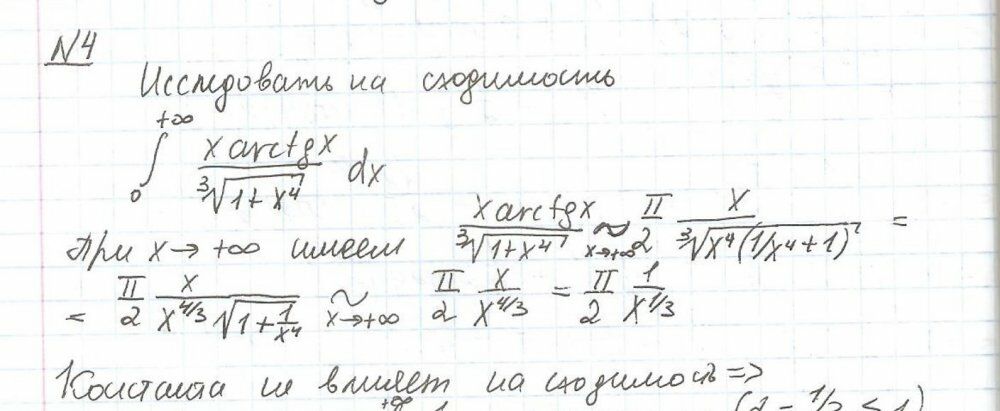 N4
Исследовать на сходимость
+∞
∫ x arctg x / ∛(1+x⁴) dx
0
При x→+∞ имеем x arctg x / ∛(1+x⁴) ~ x→+∞ π/2 x / ∛(x⁴(1/x⁴+1)) =
= π/2 x / (x^4/3 √(1+1/x⁴)) ~ x→+∞ π/2 x / x^4/3 = π/2 1 / x^1/3
Константа не влияет на сходимость =>